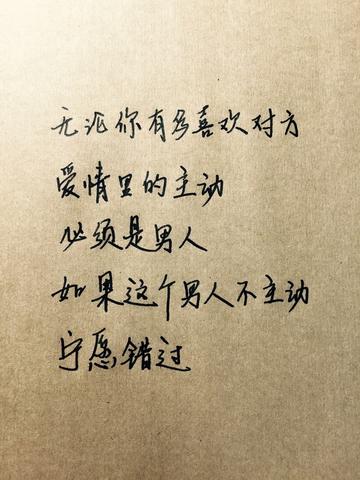 无论你有多喜欢对方
爱情里的主动
必须是男人
如果这个男人不主动
宁愿错过